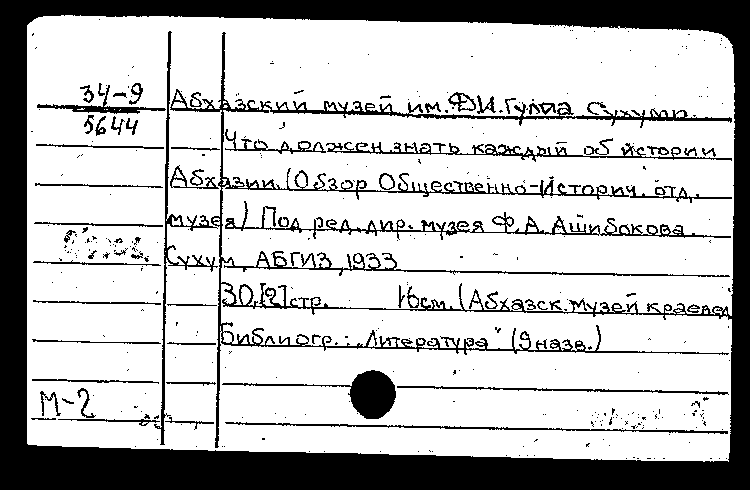 34-9
5644
Абхазский музей им. Д.И. Гулиа Сухуми.
Что должен знать каждый об истории
Абхазии. (Обзор Общественно-Историч. отд.
музея) Под ред. дир. музея Ф. А. Ашибокова.
Сухум, АБГИЗ, 1933
30,[2]стр. 16см. (Абхазск. музей краевед
Библиогр.: „Литература" (9 назв.)
М-2